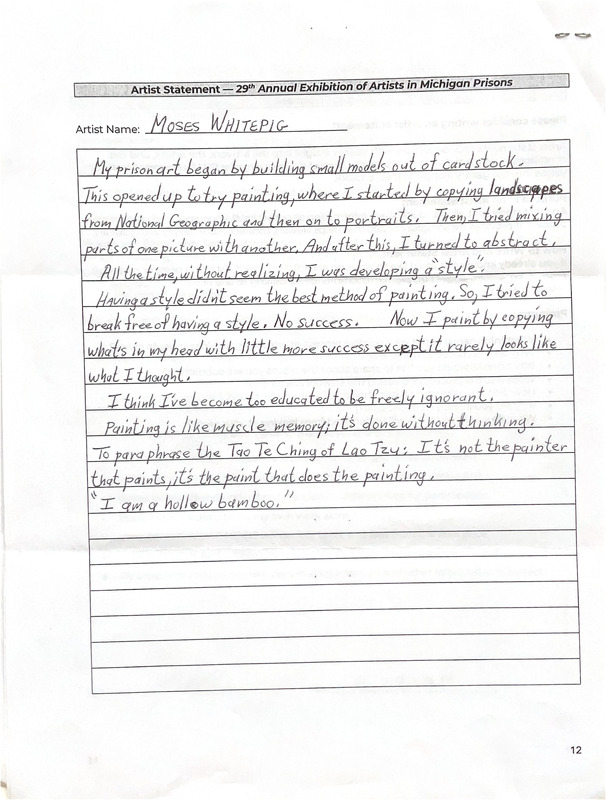 Artist Statement — 29th Annual Exhibition of Artists in Michigan Prisons
Artist Name: MOSES WHITEPIG
My prison art began by building small models out of cardstock.
This opened up to try painting, where I started by copying landscapes
from National Geographic and then on to portraits. Then, I tried mixing
parts of one picture with another. And after this, I turned to abstract.
All the time, without realizing, I was developing a "style".
Having a style didn't seem the best method of painting. So, I tried to
break free of having a style. No success. Now I paint by copying
what's in my head with little more success except it rarely looks like
what I thought.
I think I've become too educated to be freely ignorant.
Painting is like muscle memory; it's done without thinking.
To paraphrase the Tao Te Ching of Lao Tzu: It's not the painter
that paints, it's the paint that does the painting.
"I am a hollow bamboo."
12